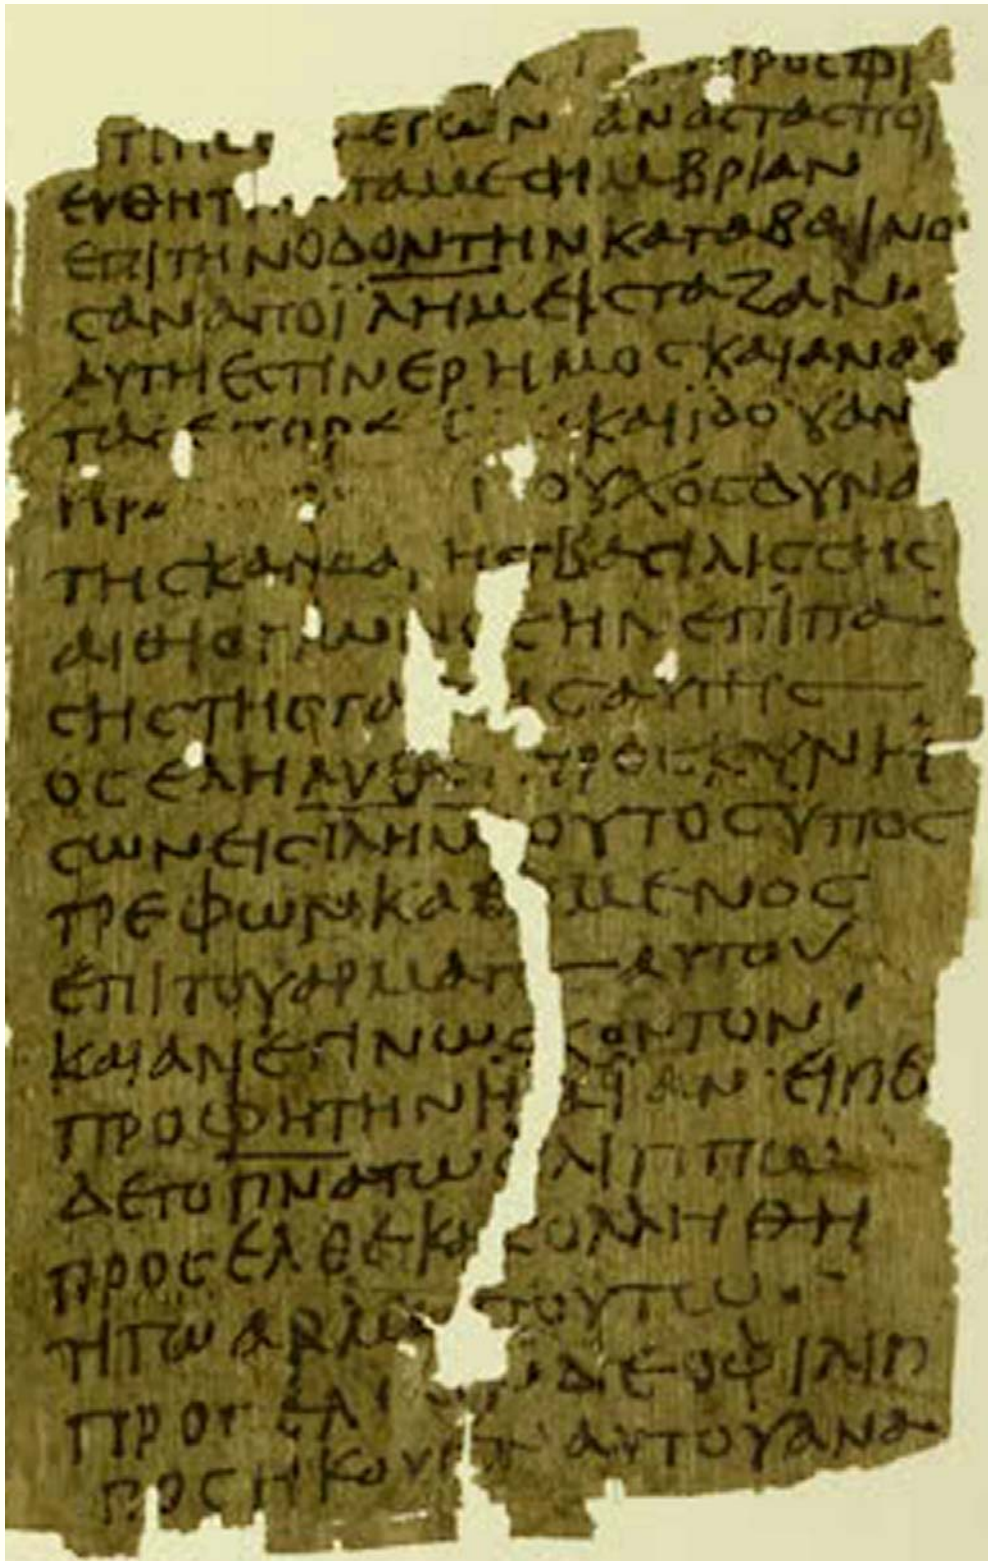 προςφι
εγων αναсταсπο
ευθητ ταμεσημβριαν
επιτηνοδοντηνκαταβαινο
σαναποϊλημειςγαζαν
αυτηεστινερημοςκαιανας
ταςεπορε καιϊδουαν
ηρ ουχοςδυνα
τηςκανδα ηςβασιλισσης
αιθιοπωνοςηνεπιπα
σηςτηςγα ηςαυτης
οςεληλυθ προσκυνη
σωνειςιλημουτοςυπος
τρεφωνκαθημενος
επιτουαρματ αυτου
καιανεγινωσκοντον
προφητηνη αιαν ειπε
δετοπνατωφιλιππω
προσελθεκαικολληθη
τητωαρμα τουτω
προσελ δεοφιλιπ
ποςηκουσεναυτουανα